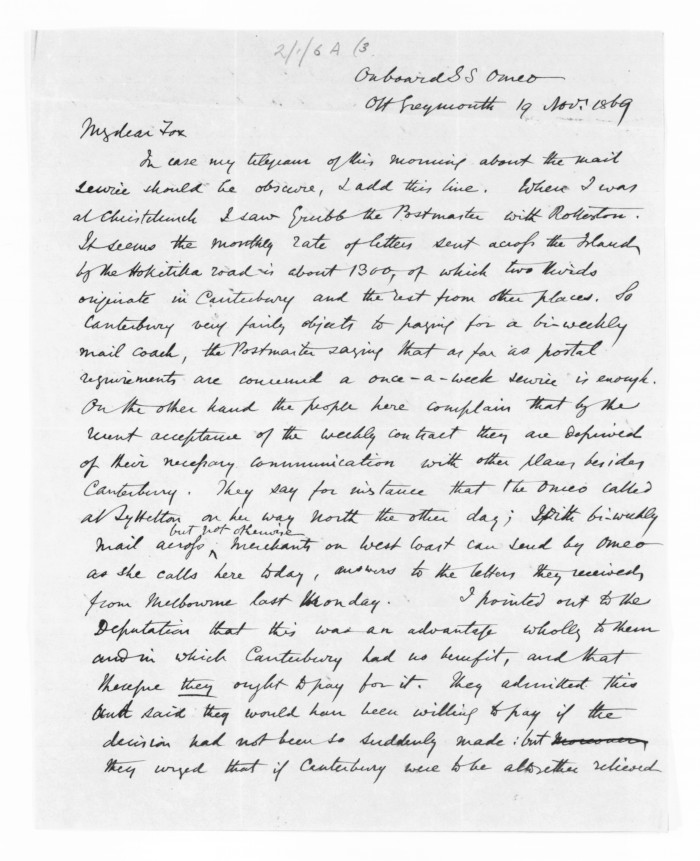 2/1/6 A (3
Onboard S S Omeo
Off Greymouth 19 Novr. 1869
My dear Fox
In case my telegram of this morning about the mail
service should be obscure, I add this line. When I was
at Christchurch I saw Grubb the Postmaster with Rolleston.
It seems the monthly rate of letters sent across the Island
by the Hokitika road is about 1300, of which two thirds
originate in Canterbury and the rest from other places. So
Canterbury very fairly objects to paying for a bi-weekly
mail coach, the Postmaster saying that as far as postal
requirements are concerned a once-a-week service is enough.
On the other hand the people here complain that by the
recent acceptance of the weekly contract they are deprived
of their necessary communication with other places besides
Canterbury. They say for instance that the Omeo called
at Lyttelton on her way North the other day; With bi-weekly
but not otherwise
mail across ‸ Merchants on West Coast can send by Omeo
as she calls here today, answers to the letters they received
from Melbourne last Monday. I pointed out to the
Deputation that this was an advantage wholly to them
and in which Canterbury had no benefit, and that
therefore they ought to pay for it. They admitted this
and said they would have been willing to pay if the
decision had not been so suddenly made: but moreover
they urged that if Canterbury were to be altogether relieved